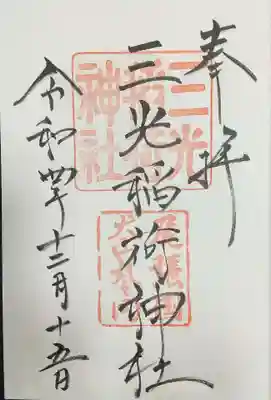 奉拝
三光稲荷神社
令和四年十二月十五日
三光
稲荷
神社